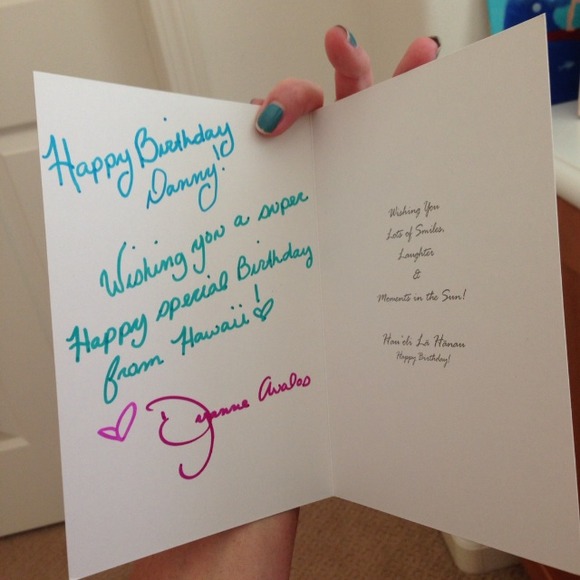 Happy Birthday
Danny!
Wishing you a super
Happy special Birthday
from Hawaii!
Dyanne Avalos
Wishing You
Lots of Smiles,
Laughter
&
Moments in the Sun!
Hau'oli Lā Hānau
Happy Birthday!